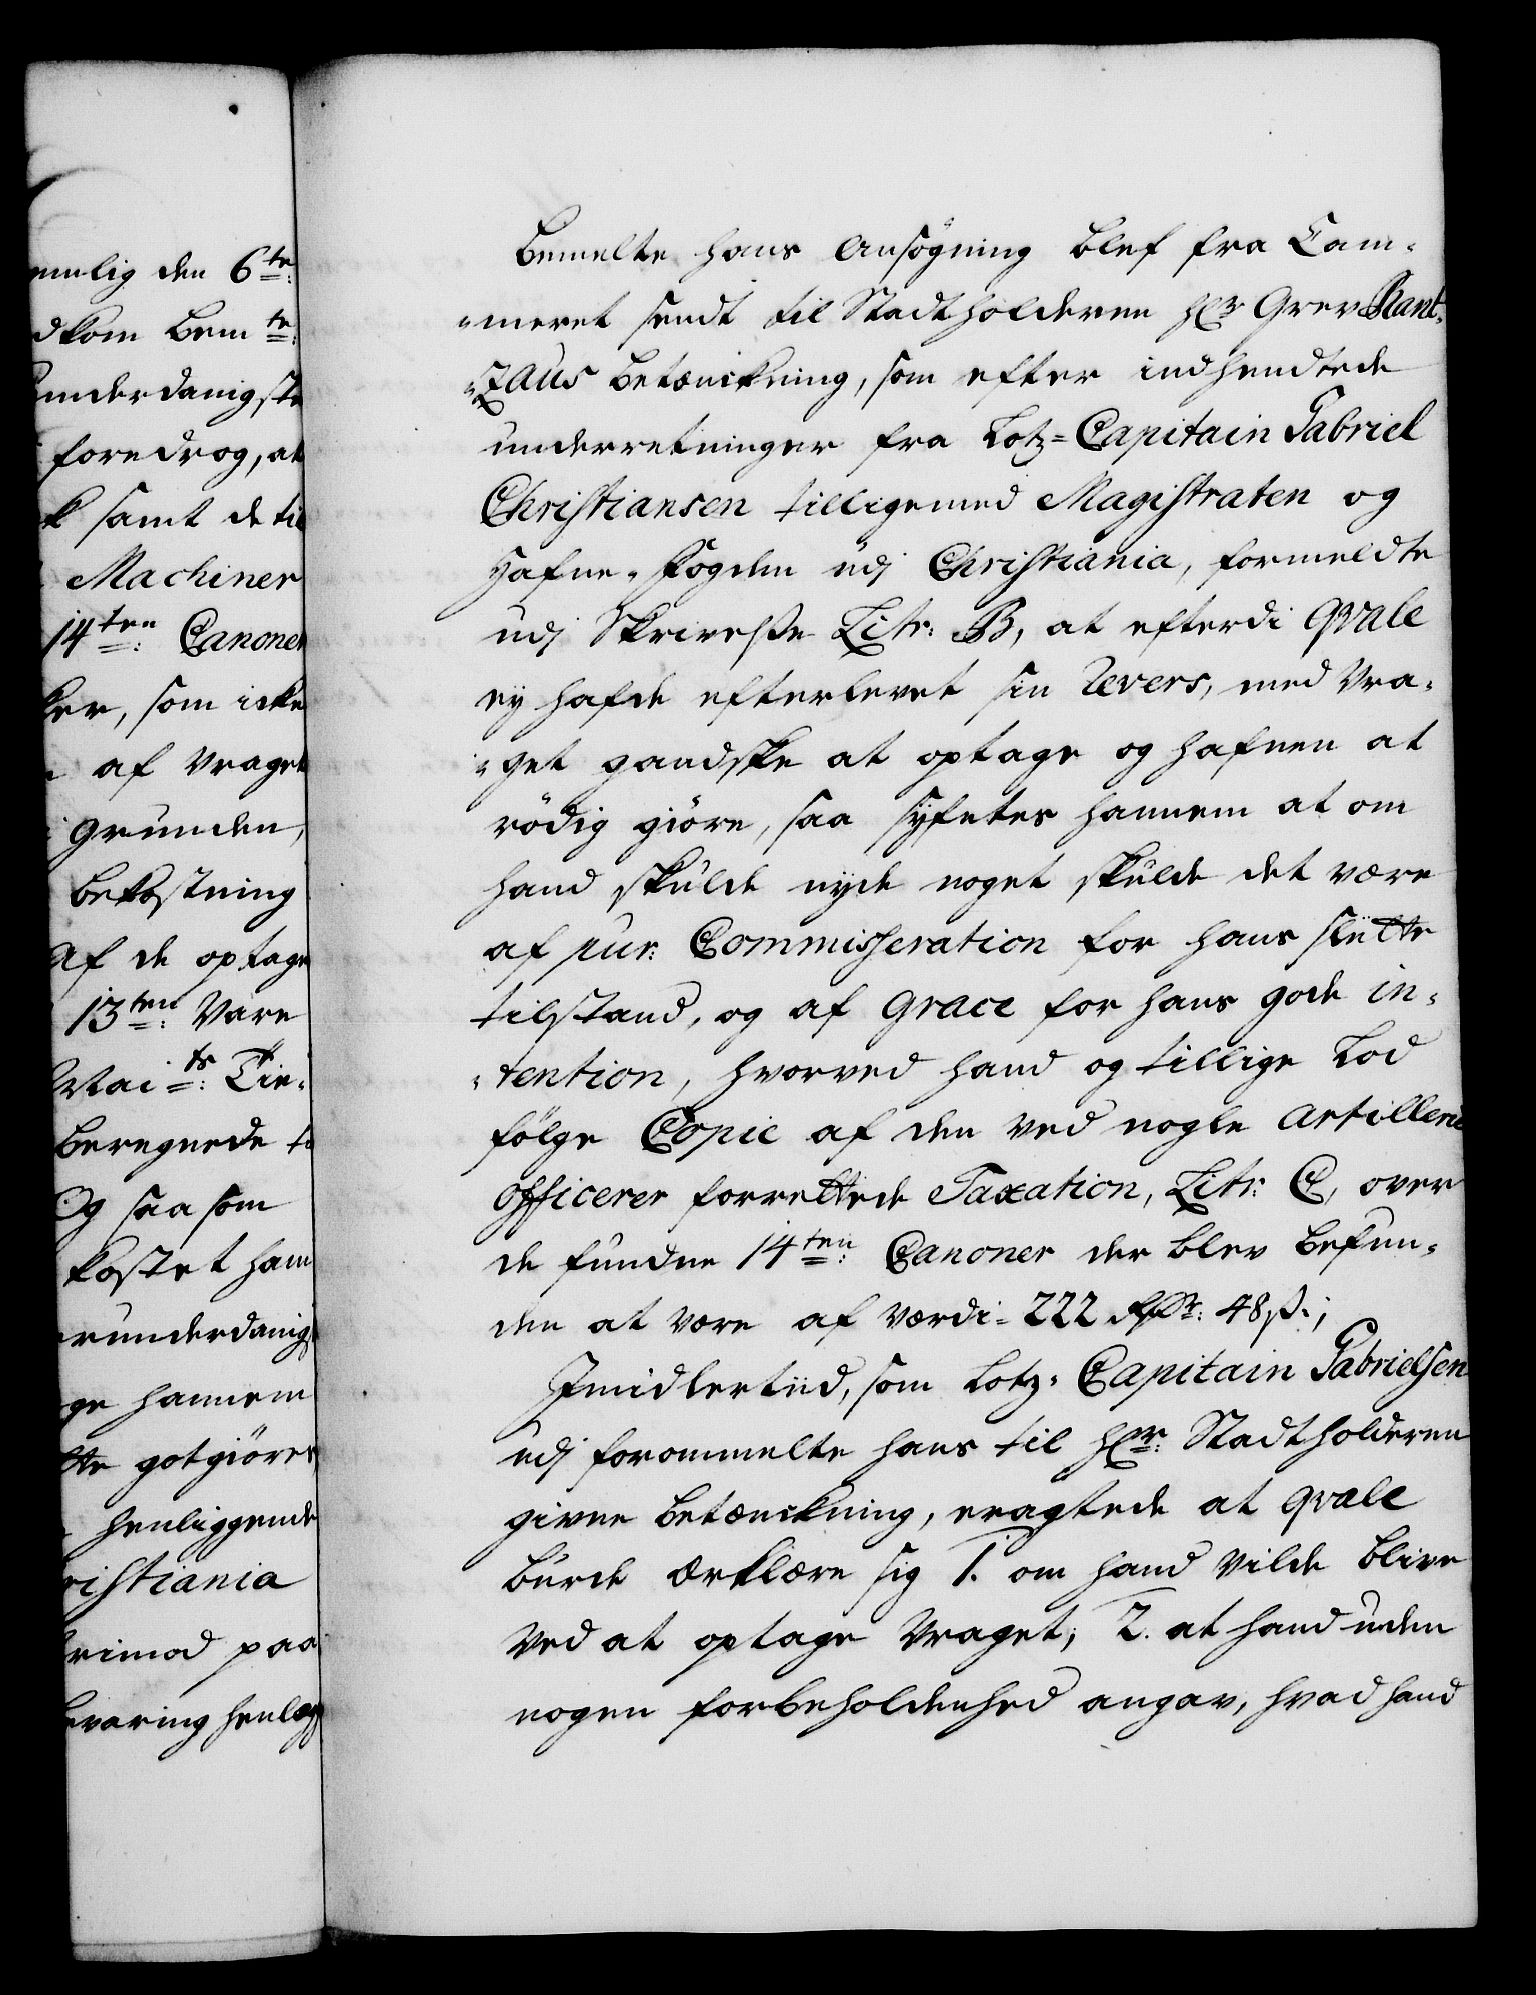 emlig den 6te:
dkom bemte:
underdanigste
foredrog, at
k samt de til
Machiner
14ten: Canoner
ker, som icke
af Vraget
grunden,
bekostning
af de optage
13ten: Vare
Mai ts: Tie-
beregnede
Og saa som
kostet ham
runderdanig
ge hannem
tte gotgiöres
henliggende
ristiania
rimod paa
evaring henlæg
Bemelte hans Ansögning blef fra Cam-
-meret sendt til Stadtholderen Hr Grev Rant-
-zaus betænckning, som efter indhendtede
underretninger fra Lotz-Capitain Gabriel
Christiansen tilligemed Magistraten og
Hafne-Fogden udj Christiania, formeldte
udj Skrivelse Litr: B, at efterdi Qvale
ey hafde efterlevet sin Revers, med Vra-
-get gandske at optage og hafnen at
rödig giöre, saa syfntes hannem at om
hand skulde nyde noget skulde det være
af pur: Commisseration for hans slette
tilstand, og af grace for hans gode in-
-tention, hvorved hand og tillige Lod
fölge Copie af den ved nogle Artillerie
officerer forrettede Taxation, Litr: C, over
de fundne 14ten: Canoner der blev befun-
den at være af værdi- 222 Rdr: 48 ß.;
Imidlertiid, som Lotz-Capitain Gabrielsen
udj forommelte hans til Hr: Stadtholderen
givne betænckning, eragtede at Qvale
burde Ærklære sig 1. om hand vilde blive
ved at optage Vraget; 2. at hand uden
nogen forbeholdenhed angav, hvad hand